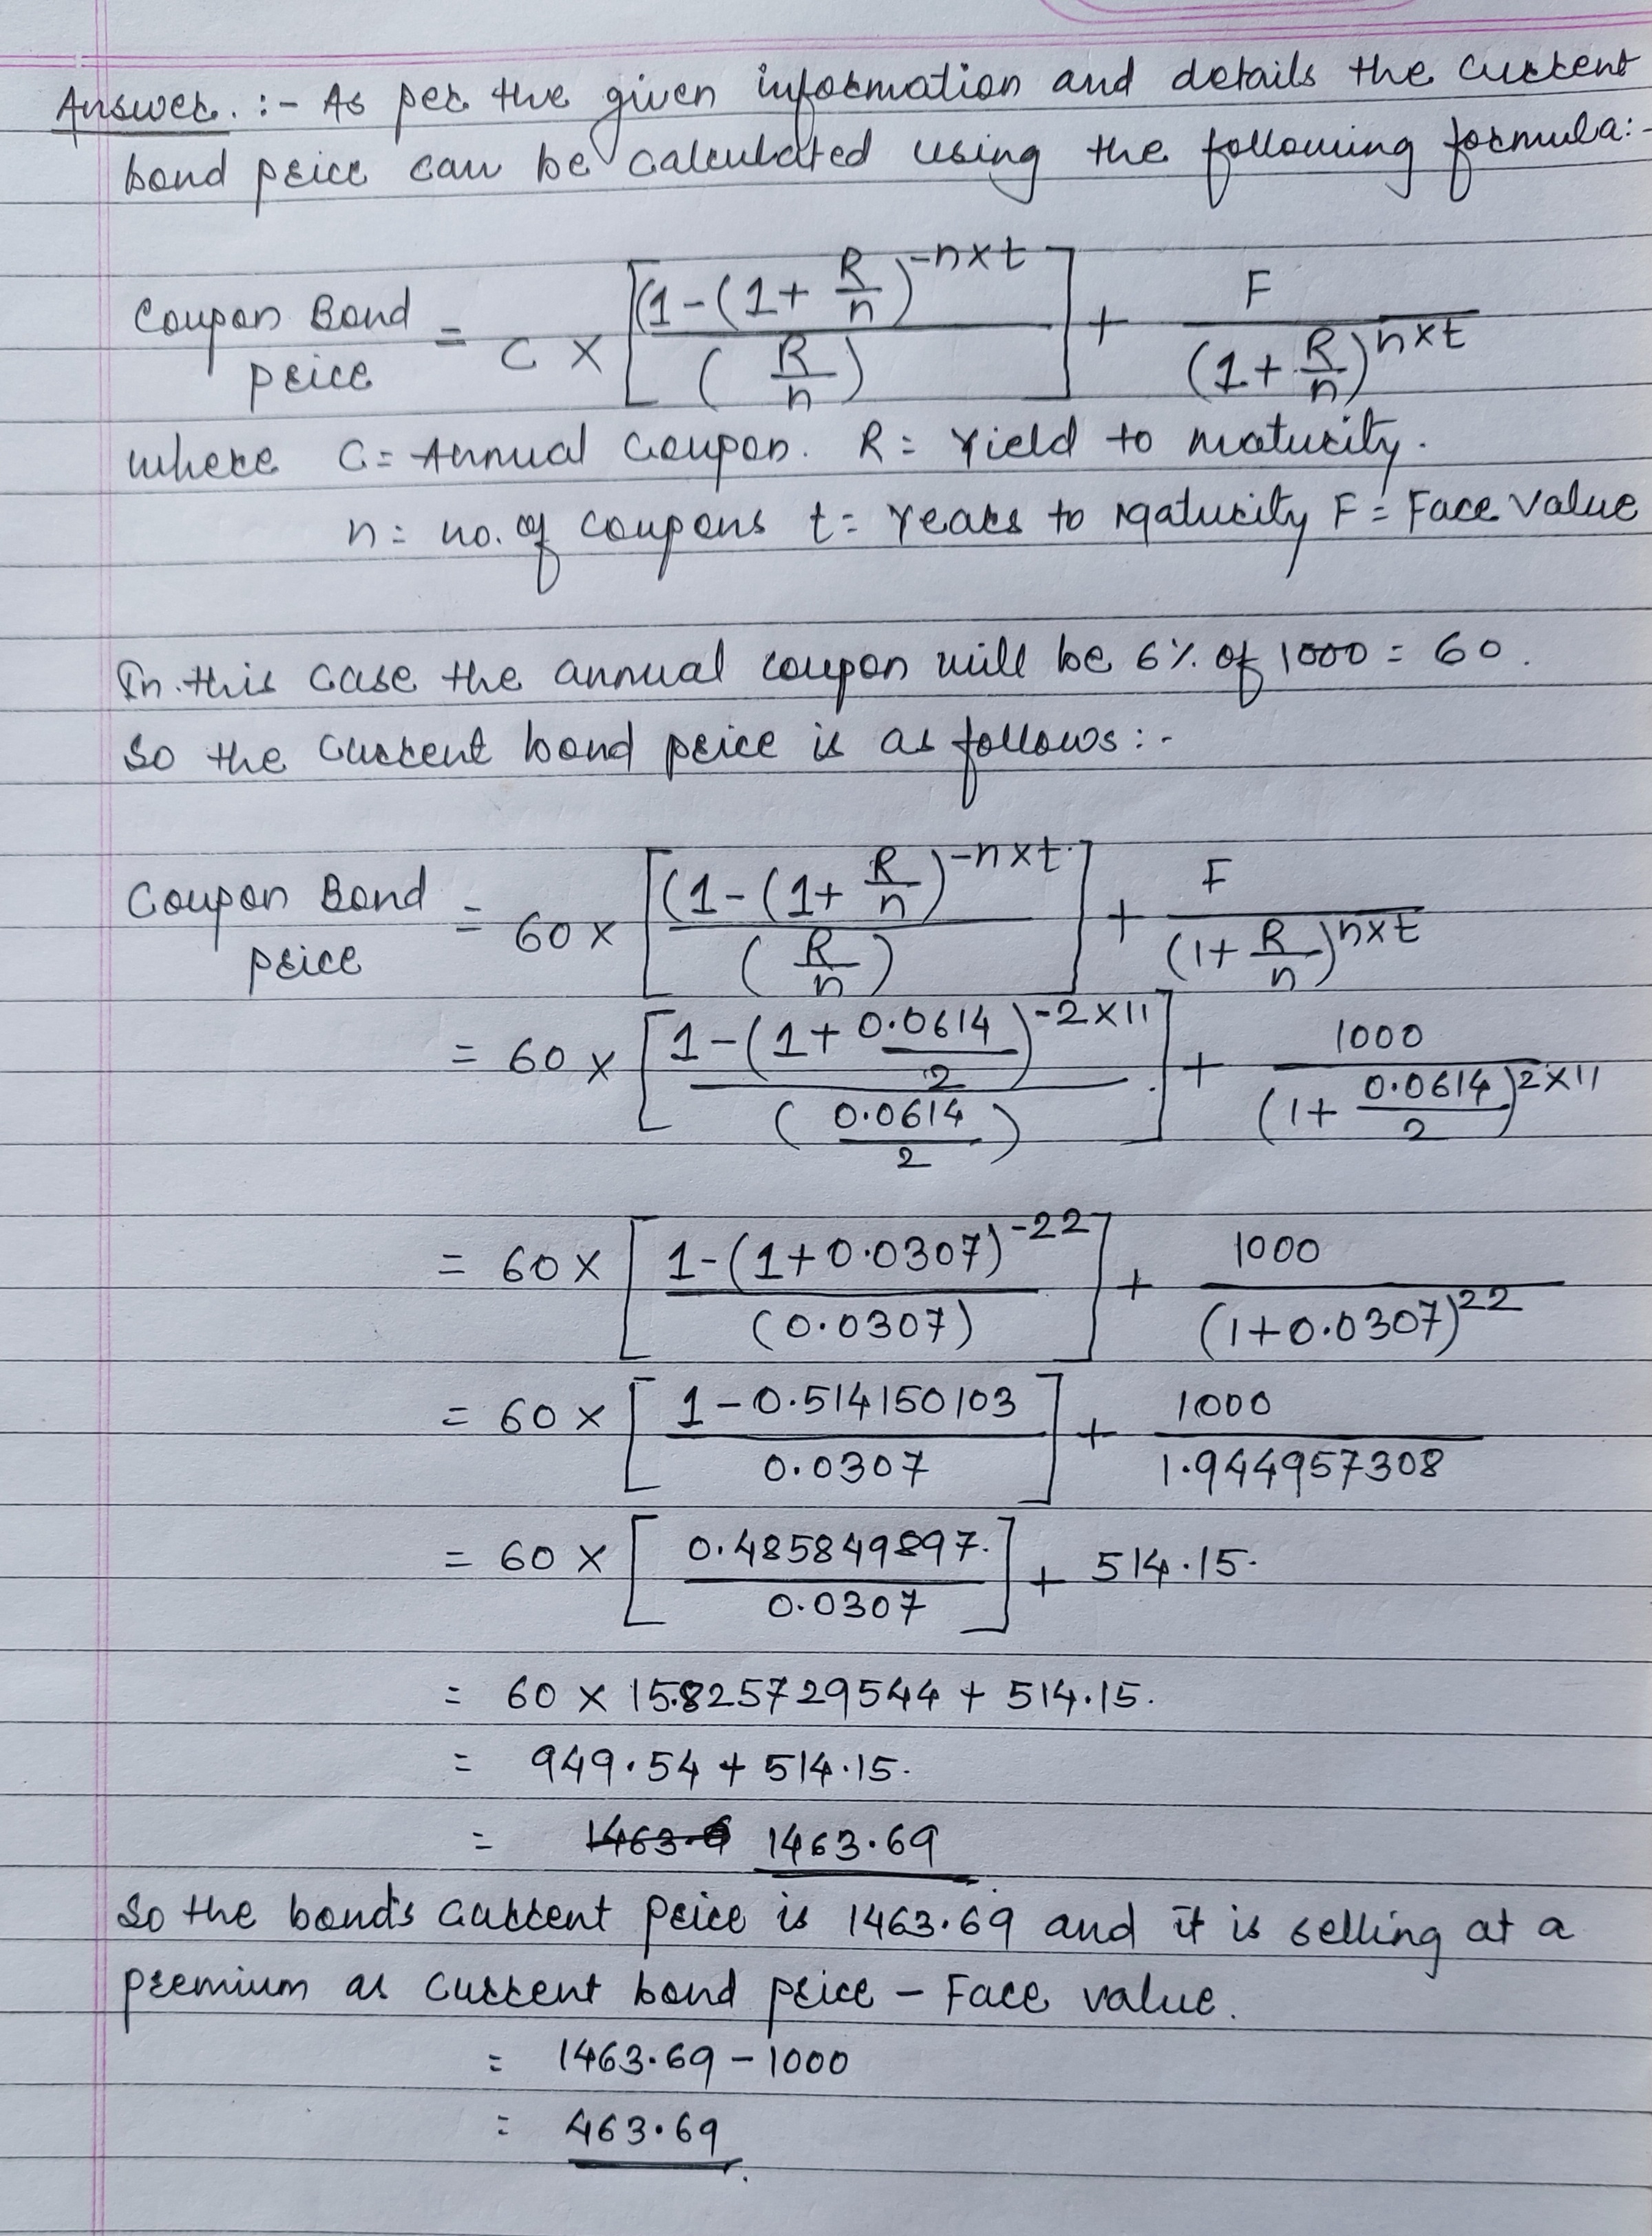 Answer. :- As per the given information and details the current
bond price can be calculated using the following formula:-
Coupon Bond price = C × [(1-(1+ R/n)^-n×t / (R/n)] + F / (1+ R/n)^n×t
where C = Annual Coupon. R = Yield to maturity.
n = no. of coupons t = Years to Maturity F = Face Value
In this case the annual coupon will be 6% of 1000 = 60.
So the current bond price is as follows:-
Coupon Bond price = 60 × [(1-(1+ R/n)^-n×t / (R/n)] + F / (1+ R/n)^n×t
= 60 × [1-(1+ 0.0614/2)^-2×11 / (0.0614/2)] + 1000 / (1+ 0.0614/2)^2×11
= 60 × [1-(1+0.0307)^-22 / (0.0307)] + 1000 / (1+0.0307)^22
= 60 × [1-0.514150103 / 0.0307] + 1000 / 1.944957308
= 60 × [0.485849897. / 0.0307] + 514.15.
= 60 × 15.825729544 + 514.15.
= 949.54 + 514.15.
= 1463.69
So the bond's current price is 1463.69 and it is selling at a
premium as current bond price - Face value.
= 1463.69 - 1000
= 463.69